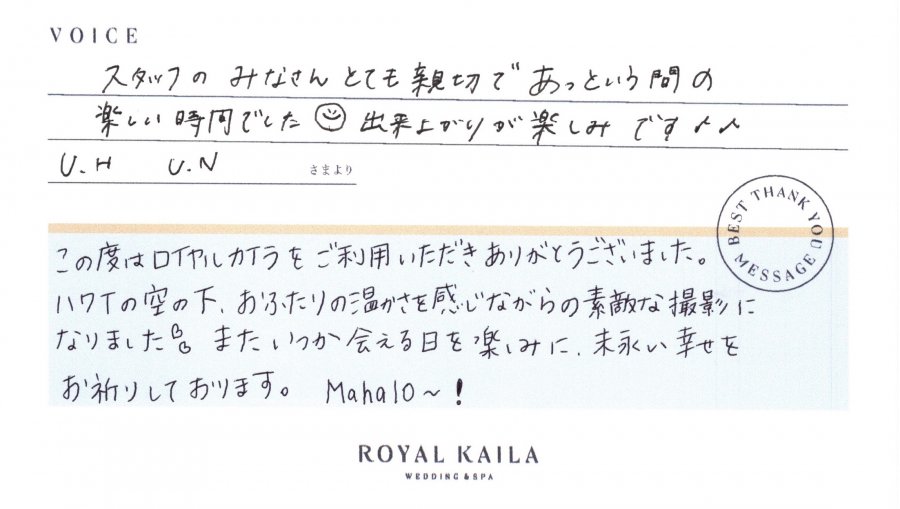 VOICE
スタッフの みなさん とても 親切で あっという間の
楽しい 時間でした 出来上がりが 楽しみ です♪♪
U.H U.N さまより
BEST THANK YOU MESSAGE
この度はロイヤルカイラをご利用いただきありがとうございました。
ハワイの空の下、おふたりの温かさを感じながらの素敵な撮影に
なりました またいつか会える日を楽しみに、末永い幸せを
お祈りしております。 Mahalo~!
ROYAL KAILA
WEDDING & SPA